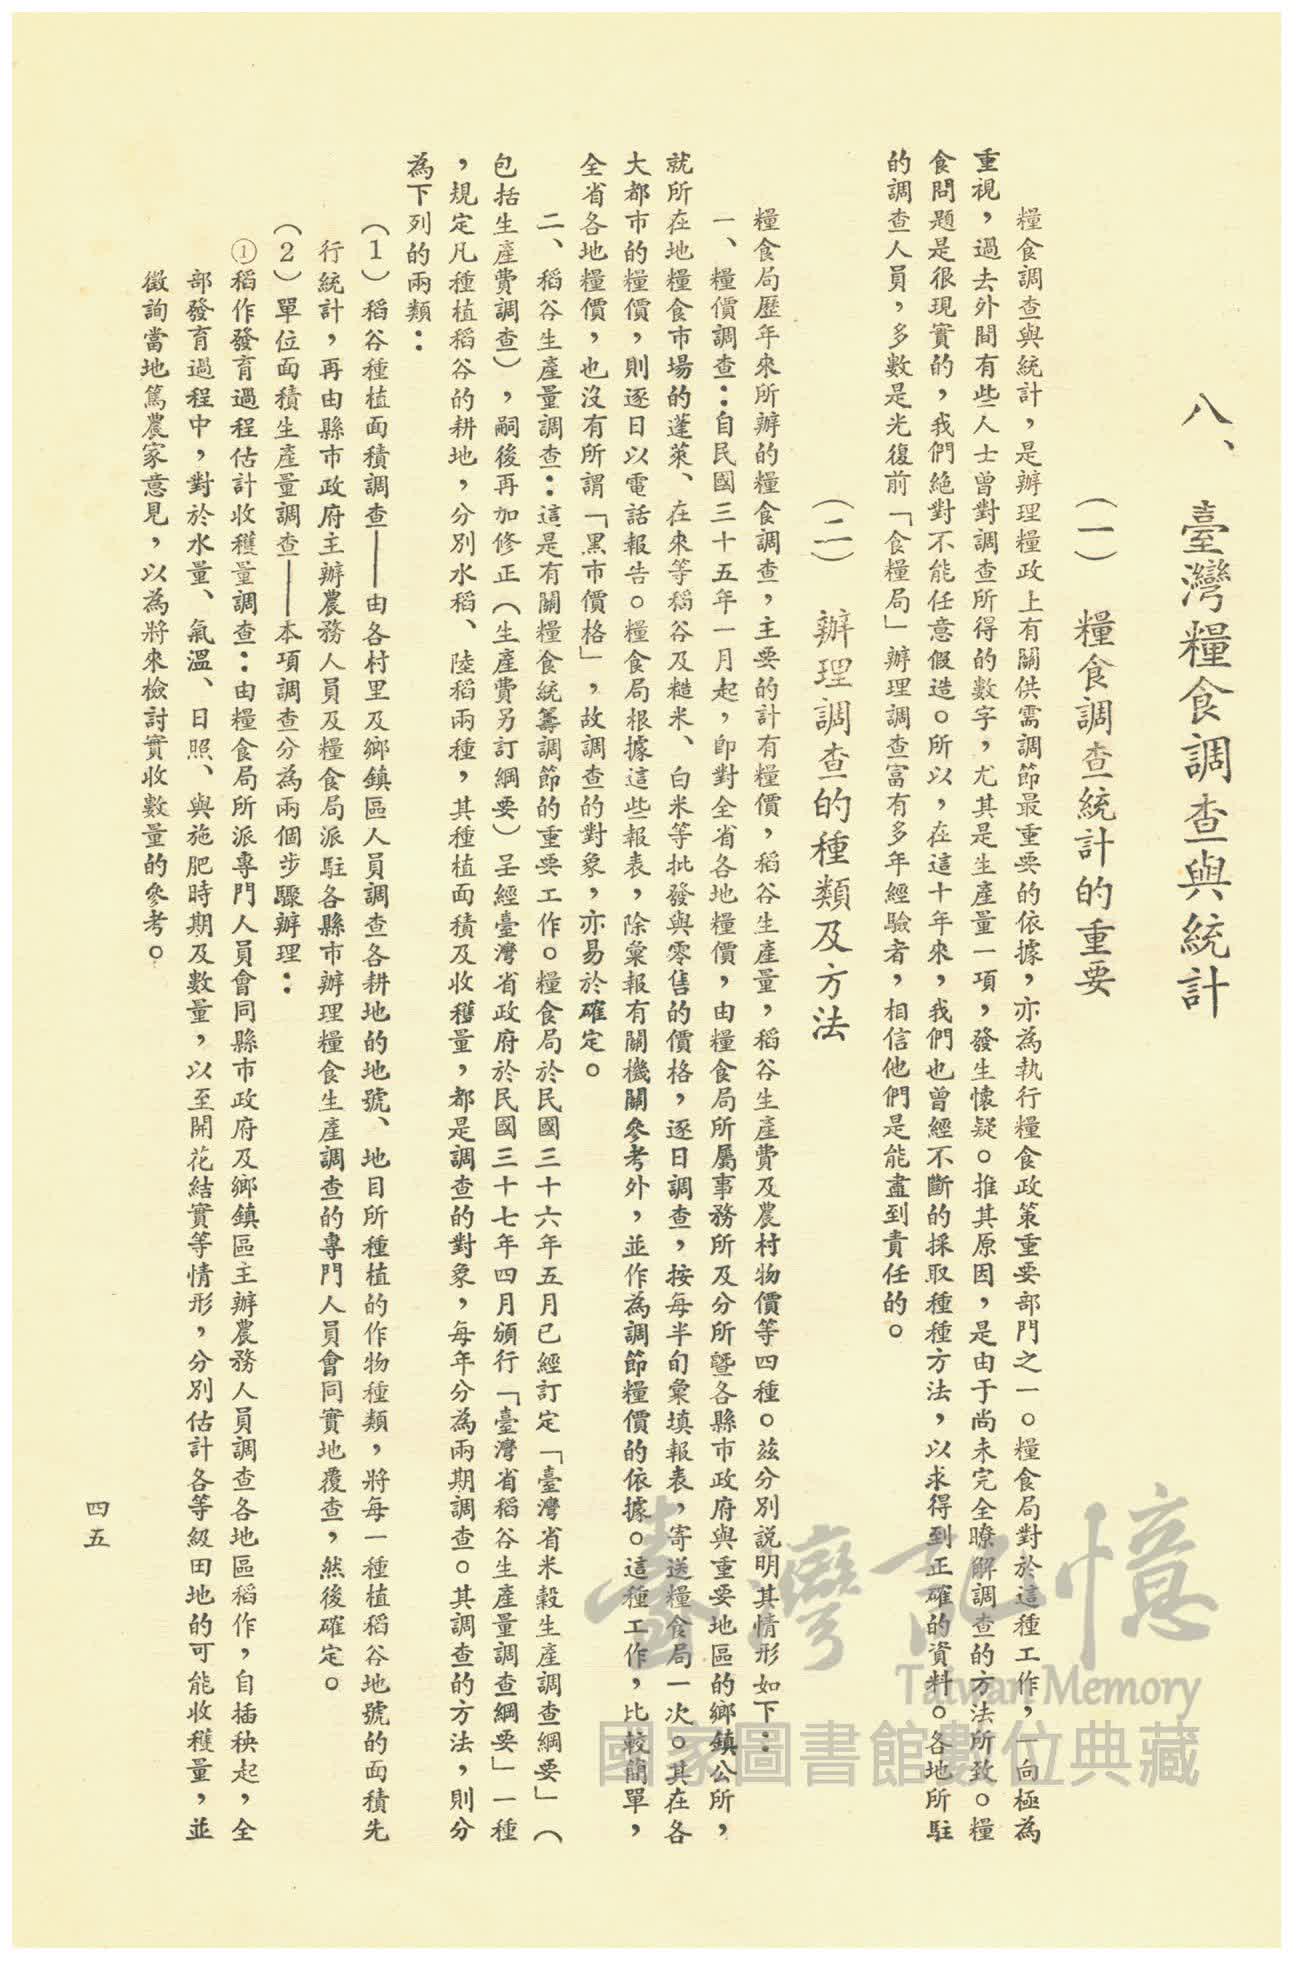 八、臺灣糧食調查與統計
(一) 糧食調查統計的重要
糧食調查與統計，是辦理糧政上有關供需調節最重要的依據，亦為執行糧食政策重要部門之一。糧食局對於這種工作，一向極為
重視，過去外間有些人士曾對調查所得的數字，尤其是生產量一項，發生懷疑。推其原因，是由于尚未完全瞭解調查的方法所致。糧
食問題是很現實的，我們絕對不能任意假造。所以，在這十年來，我們也曾經不斷的採取種種方法，以求得到正確的資料。各地所駐
的調查人員，多數是光復前「食糧局」辦理調查富有多年經驗者，相信他們是能盡到責任的。
(二) 辦理調查的種類及方法
糧食局歷年來所辦的糧食調查，主要的計有糧價，稻谷生產量，稻谷生產費及農村物價等四種。茲分別說明其情形如下：
一、糧價調查：自民國三十五年一月起，即對全省各地糧價，由糧食局所屬事務所及分所暨各縣市政府與重要地區的鄉鎮公所，
就所在地糧食市場的蓬萊、在來等稻谷及糙米、白米等批發與零售的價格，逐日調查，按每半旬彙填報表，寄送糧食局一次。其在各
大都市的糧價，則逐日以電話報告。糧食局根據這些報表，除彙報有關機關參考外，並作為調節糧價的依據。這種工作，比較簡單，
全省各地糧價，也沒有所謂「黑市價格」，故調查的對象，亦易於確定。
二、稻谷生產量調查：這是有關糧食統籌調節的重要工作。糧食局於民國三十六年五月已經訂定「臺灣省米穀生產調查綱要」(
包括生產費調查)，嗣後再加修正(生產費另訂綱要)呈經臺灣省政府於民國三十七年四月頒行「臺灣省稻谷生產量調查綱要」一種
，規定凡種植稻谷的耕地，分別水稻、陸稻兩種，其種植面積及收穫量，都是調查的對象，每年分為兩期調查。其調查的方法，則分
為下列的兩類：
(1)稻谷種植面積調查——由各村里及鄉鎮區人員調查各耕地的地號、地目所種植的作物種類，將每一種植稻谷地號的面積先
行統計，再由縣市政府主辦農務人員及糧食局派駐各縣市辦理糧食生產調查的專門人員會同實地覆查，然後確定。
(2)單位面積生產量調查——本項調查分為兩個步驟辦理：
①稻作發育過程估計收穫量調查：由糧食局所派專門人員會同縣市政府及鄉鎮區主辦農務人員調查各地區稻作，自插秧起，全
部發育過程中，對於水量、氣溫、日照、與施肥時期及數量，以至開花結實等情形，分別估計各等級田地的可能收穫量，並
徵詢當地篤農家意見，以為將來檢討實收數量的參考。
四五
臺灣記憶
Taiwan Memory
國家圖書館數位典藏